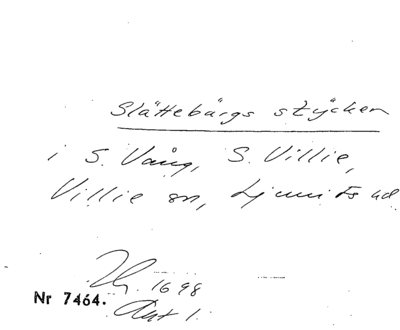 Slättebärgs stÿcken
i S. Vång, S. Villie,
Villie sn, Ljunits hd
Jb. 1698
Nr 7464.
Akt 1.